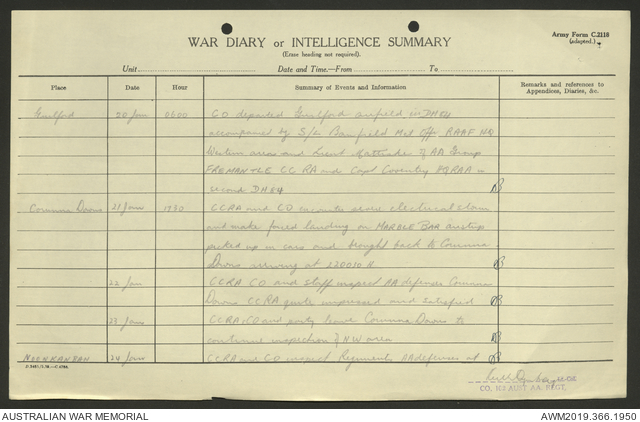 Army Form C.2118
(adapted.)
WAR DIARY or INTELLIGENCE SUMMARY
(Erase heading not required).
Unit Date and Time.—From To
Place Date Hour Summary of Events and Information Remarks and references to Appendices, Diaries, &c.
Guilford 20 Jan 0600 CO departed Guilford airfield in DH84
accompanied by S/L Met Offr. RAAF HQ
Western area and Lieut of AA Group
FREMANTLE CCRA and Capt Coventry HQ RAA in
second DH84
Corunna Downs 21 Jan 1930 CCRA and CO severe electrical storm
and make forced landing on MARBLE BAR airstrip
picked up in cars and brought back to Corunna
Downs arriving at 220010 H
22 Jan CCRA CO and staff inspect AA defences Corunna
Downs CCRA quite impressed and satisfied
23 Jan CCRA, CO and party leave Corunna Downs to
continue inspection of NW area
NOONKANBAH 24 Jan CCRA and CO inspect Regiments AA defences at
CO, AUST AA. REGT.
AUSTRALIAN WAR MEMORIAL AWM2019.366.1950